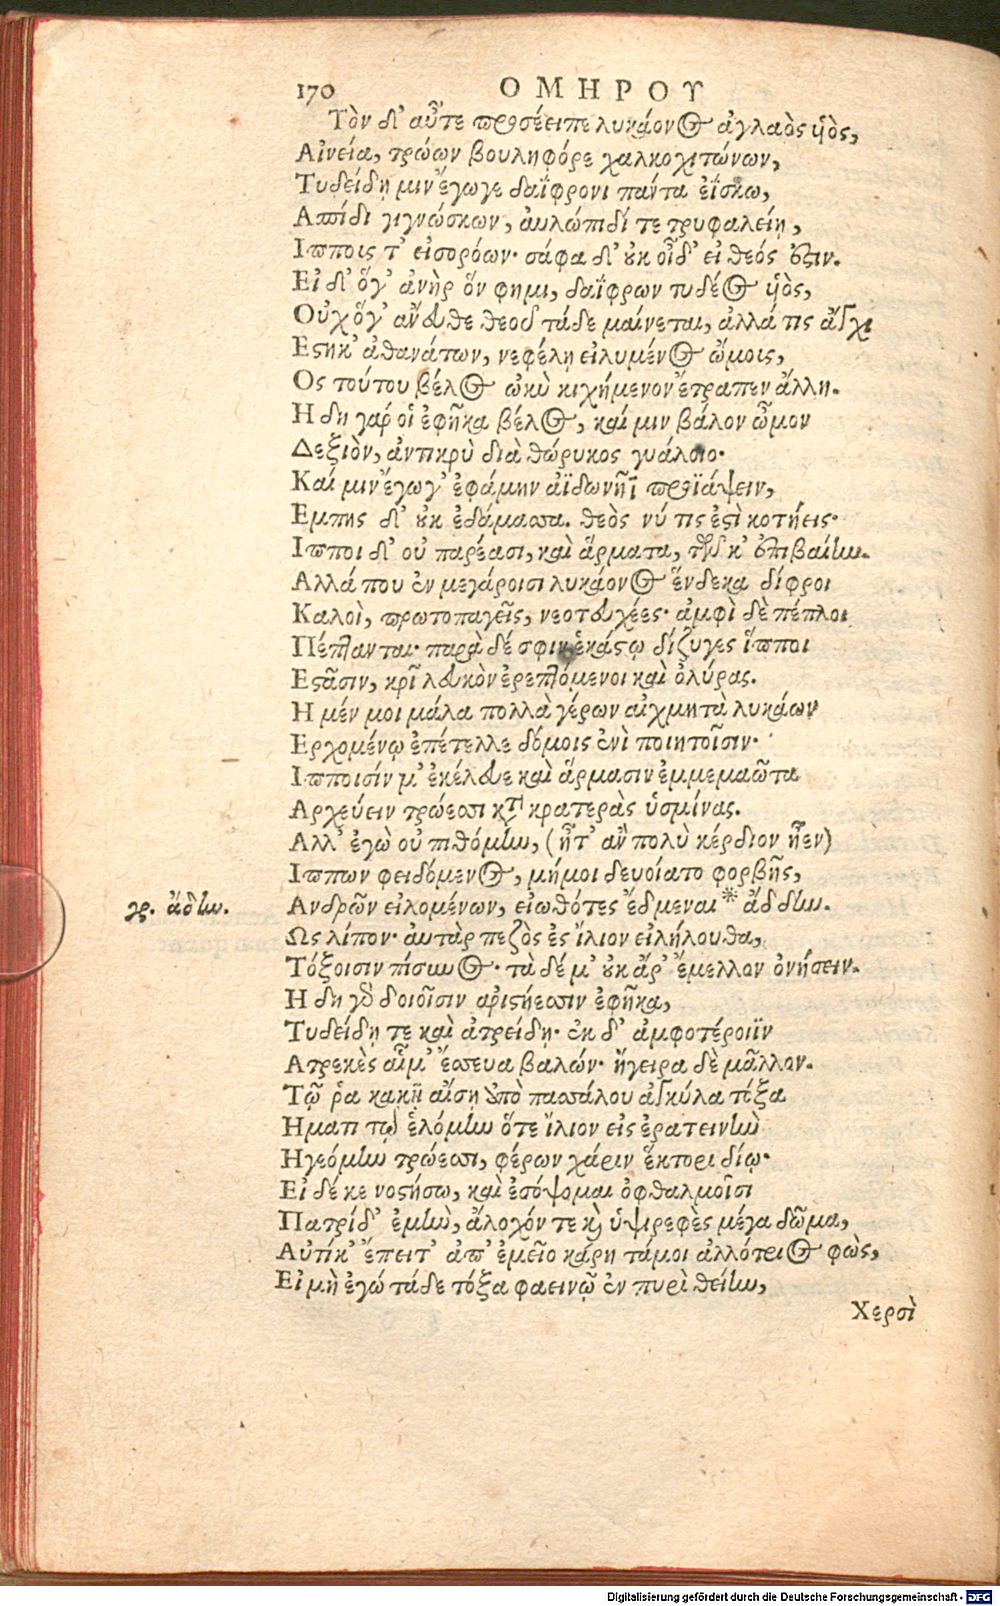 170 ΟΜΗΡΟΥ
Τὸν δ' αὖτε προσέειπε λυκάονος ἀγλαὸς ὑὸς,
Αἰνεία, τρώων βουληφόρε χαλκοχιτώνων,
Τυδείδη μιν ἔγωγε δαΐφρονι πάντα ἐΐσκω,
Ασπίδι γιγνώσκων, αὐλώπιδί τε τρυφαλείῃ,
Ιπποις τ' εἰσορόων· σάφα δ' οὐκ οἶδ' εἰ θεός ἐστιν.
Εἰ δ' ὅγ' ἀνὴρ ὅν φημι, δαΐφρων τυδέος ὑὸς,
Οὐχ ὅγ' ἄνευθε θεοῦ τάδε μαίνεται, ἀλλά τις ἄγχι
Εστηκ' ἀθανάτων, νεφέλῃ εἰλυμένος ὤμοις,
Ος τούτου βέλος ὠκὺ κιχήμενον ἔτραπεν ἄλλῃ.
Η δη γάρ οἱ ἐφῆκα βέλος, καί μιν βάλον ὦμον
Δεξιὸν, ἀντικρὺ διὰ θώρηκος γυάλοιο·
Καί μιν ἔγωγ' ἐφάμην ἀϊδωνῆϊ προϊάψειν,
Εμπης δ' οὐκ ἐδάμασσα. θεὸς νύ τις ἐστὶ κοτήεις·
Ιπποι δ' οὐ παρέασι, καὶ ἅρματα, τῶν κ' ἐπιβαίην.
Αλλά που ἐν μεγάροισι λυκάονος ἕνδεκα δίφροι
Καλοὶ, πρωτοπαγεῖς, νεοτευχέες· ἀμφὶ δὲ πέπλοι
Πέπτανται· παρὰ δέ σφιν ἑκάστῳ δίζυγες ἵπποι
Εστᾶσιν, κρῖ λευκὸν ἐρεπτόμενοι καὶ ὀλύρας.
Η μέν μοι μάλα πολλὰ γέρων αἰχμητὰ λυκάων
Ερχομένῳ ἐπέτελλε δόμοις ἐνὶ ποιητοῖσιν·
Ιπποισίν μ' ἐκέλευε καὶ ἅρμασιν ἐμμεμαῶτα
Αρχεύειν τρώεσσι κατὰ κρατερὰς ὑσμίνας.
Αλλ' ἐγὼ οὐ πιθόμην, (ἦτ' ἂν πολὺ κέρδιον ἦεν)
Ιππων φειδόμενος, μήμοι δευοίατο φορβῆς,
γρ. ἄδην. Ανδρῶν εἰλομένων, εἰωθότες ἔδμεναι* ἄδδην.
Ως λίπον· αὐτὰρ πεζὸς ἐς ἴλιον εἰλήλουθα,
Τόξοισιν πίσυνος· τὰ δέ μ' οὐκ ἄρ' ἔμελλον ὀνήσειν.
Η δη γὰρ δοιοῖσιν ἀριστήεσσιν ἐφῆκα,
Τυδείδῃ τε καὶ ἀτρείδῃ· ἐκ δ' ἀμφοτέροιϊν
Ατρεκὲς αἷμ' ἔσσευα βαλών· ἤγειρα δὲ μᾶλλον.
Τῷ ῥα κακῇ αἴσῃ ἀπὸ πασσάλου ἀγκύλα τόξα
Ηματι τῷ ἑλόμην ὅτε ἴλιον εἰς ἐρατεινὴν
Ηγεόμην τρώεσσι, φέρων χάριν ἕκτορι δίῳ·
Εἰ δέ κε νοστήσω, καὶ ἐσόψομαι ὀφθαλμοῖσι
Πατρίδ' ἐμὴν, ἄλοχόν τε καὶ ὑψιρεφὲς μέγα δῶμα,
Αὐτίκ' ἔπειτ' ἀπ' ἐμεῖο κάρη τάμοι ἀλλότριος φὼς,
Εἰ μὴ ἐγώ τάδε τόξα φαεινῷ ἐν πυρὶ θείην,
Χερσὶ
Digitalisierung gefördert durch die Deutsche Forschungsgemeinschaft - DFG